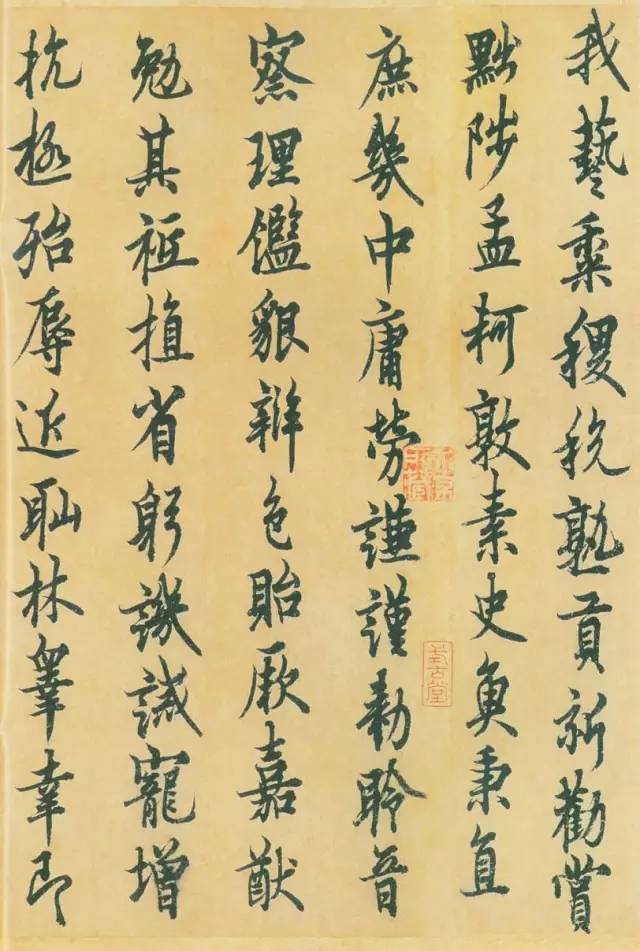 我藝黍稷稅熟貢新勸賞
黜陟孟軻敦素史魚秉直
庶幾中庸勞謙謹勑聆音
察理鑑貌辨色貽厥嘉猷
勉其祗植省躬譏誡寵增
抗極殆辱近恥林皋幸即
式古堂